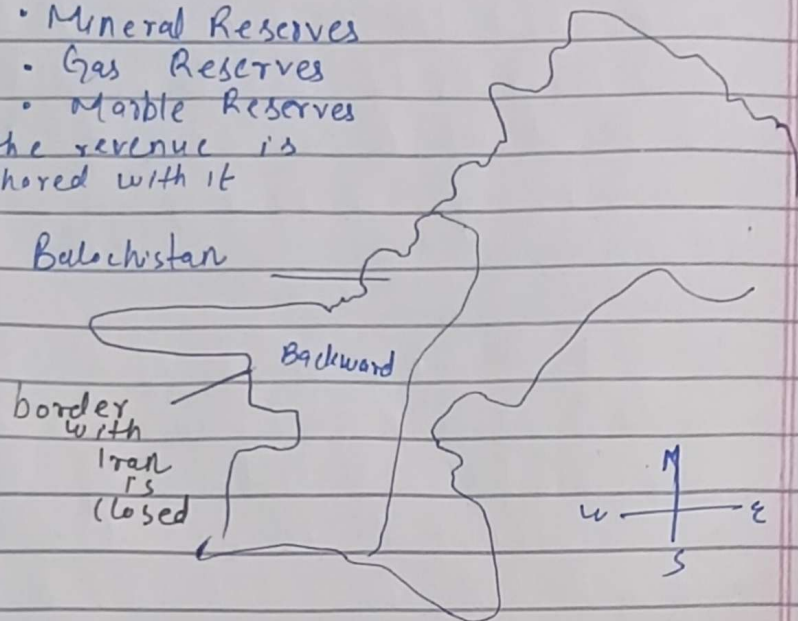 • Mineral Reserves
• Gas Reserves
• Marble Reserves
he revenue is
hored with it
Balochistan
Backward
border
with
Iran
is
closed
N
W E
S